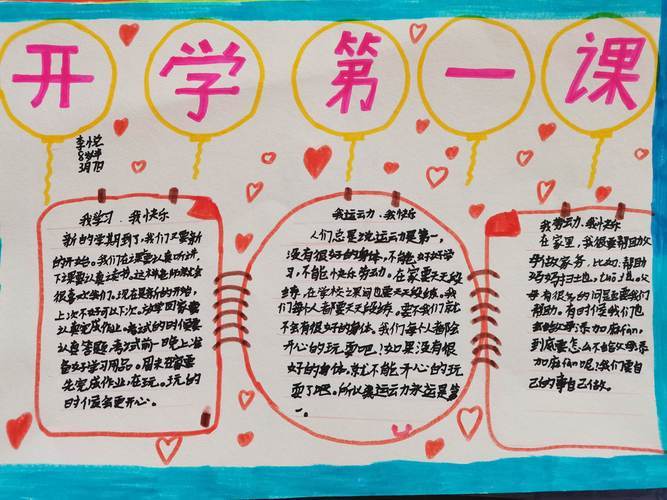 开学第一课
李悦
8岁半
3月7日
我学习、我快乐
新的学期到了,我们又要新
的开始。我们在课要认真听讲,
下课要认真读书,这样老师就会
很喜欢我们。现在是新的开始,
上次不好可以下次。放学回家要
认真完成作业。考试的时候要
认真答题,考试前一晚上准
备好学习用品。周末回家要
先完成作业,在玩。玩的
时候会更开心。
我运动、我快乐
人们总是说运动是第一,
没有很好的身体,不能好好学
习,不能快乐劳动。在家要天天锻
炼,在学校之间也要天天锻炼。我
们每个人都要天天锻炼,要不我们就
不会有很好的身体。我们每个人都会
开心的玩耍吧!如果没有很
好的身体,就不能开心的玩
耍了吧。所以运动永远是第
一。
我劳动、我快乐
在家里,我很要帮助父
母做家务,比如,帮助
妈妈扫地,
母有很多的问题要我们
帮助。有时候我们也
会给父母添加麻烦,
到底要怎么不给父母添
加麻烦呢?我们要自
己的事自己做。